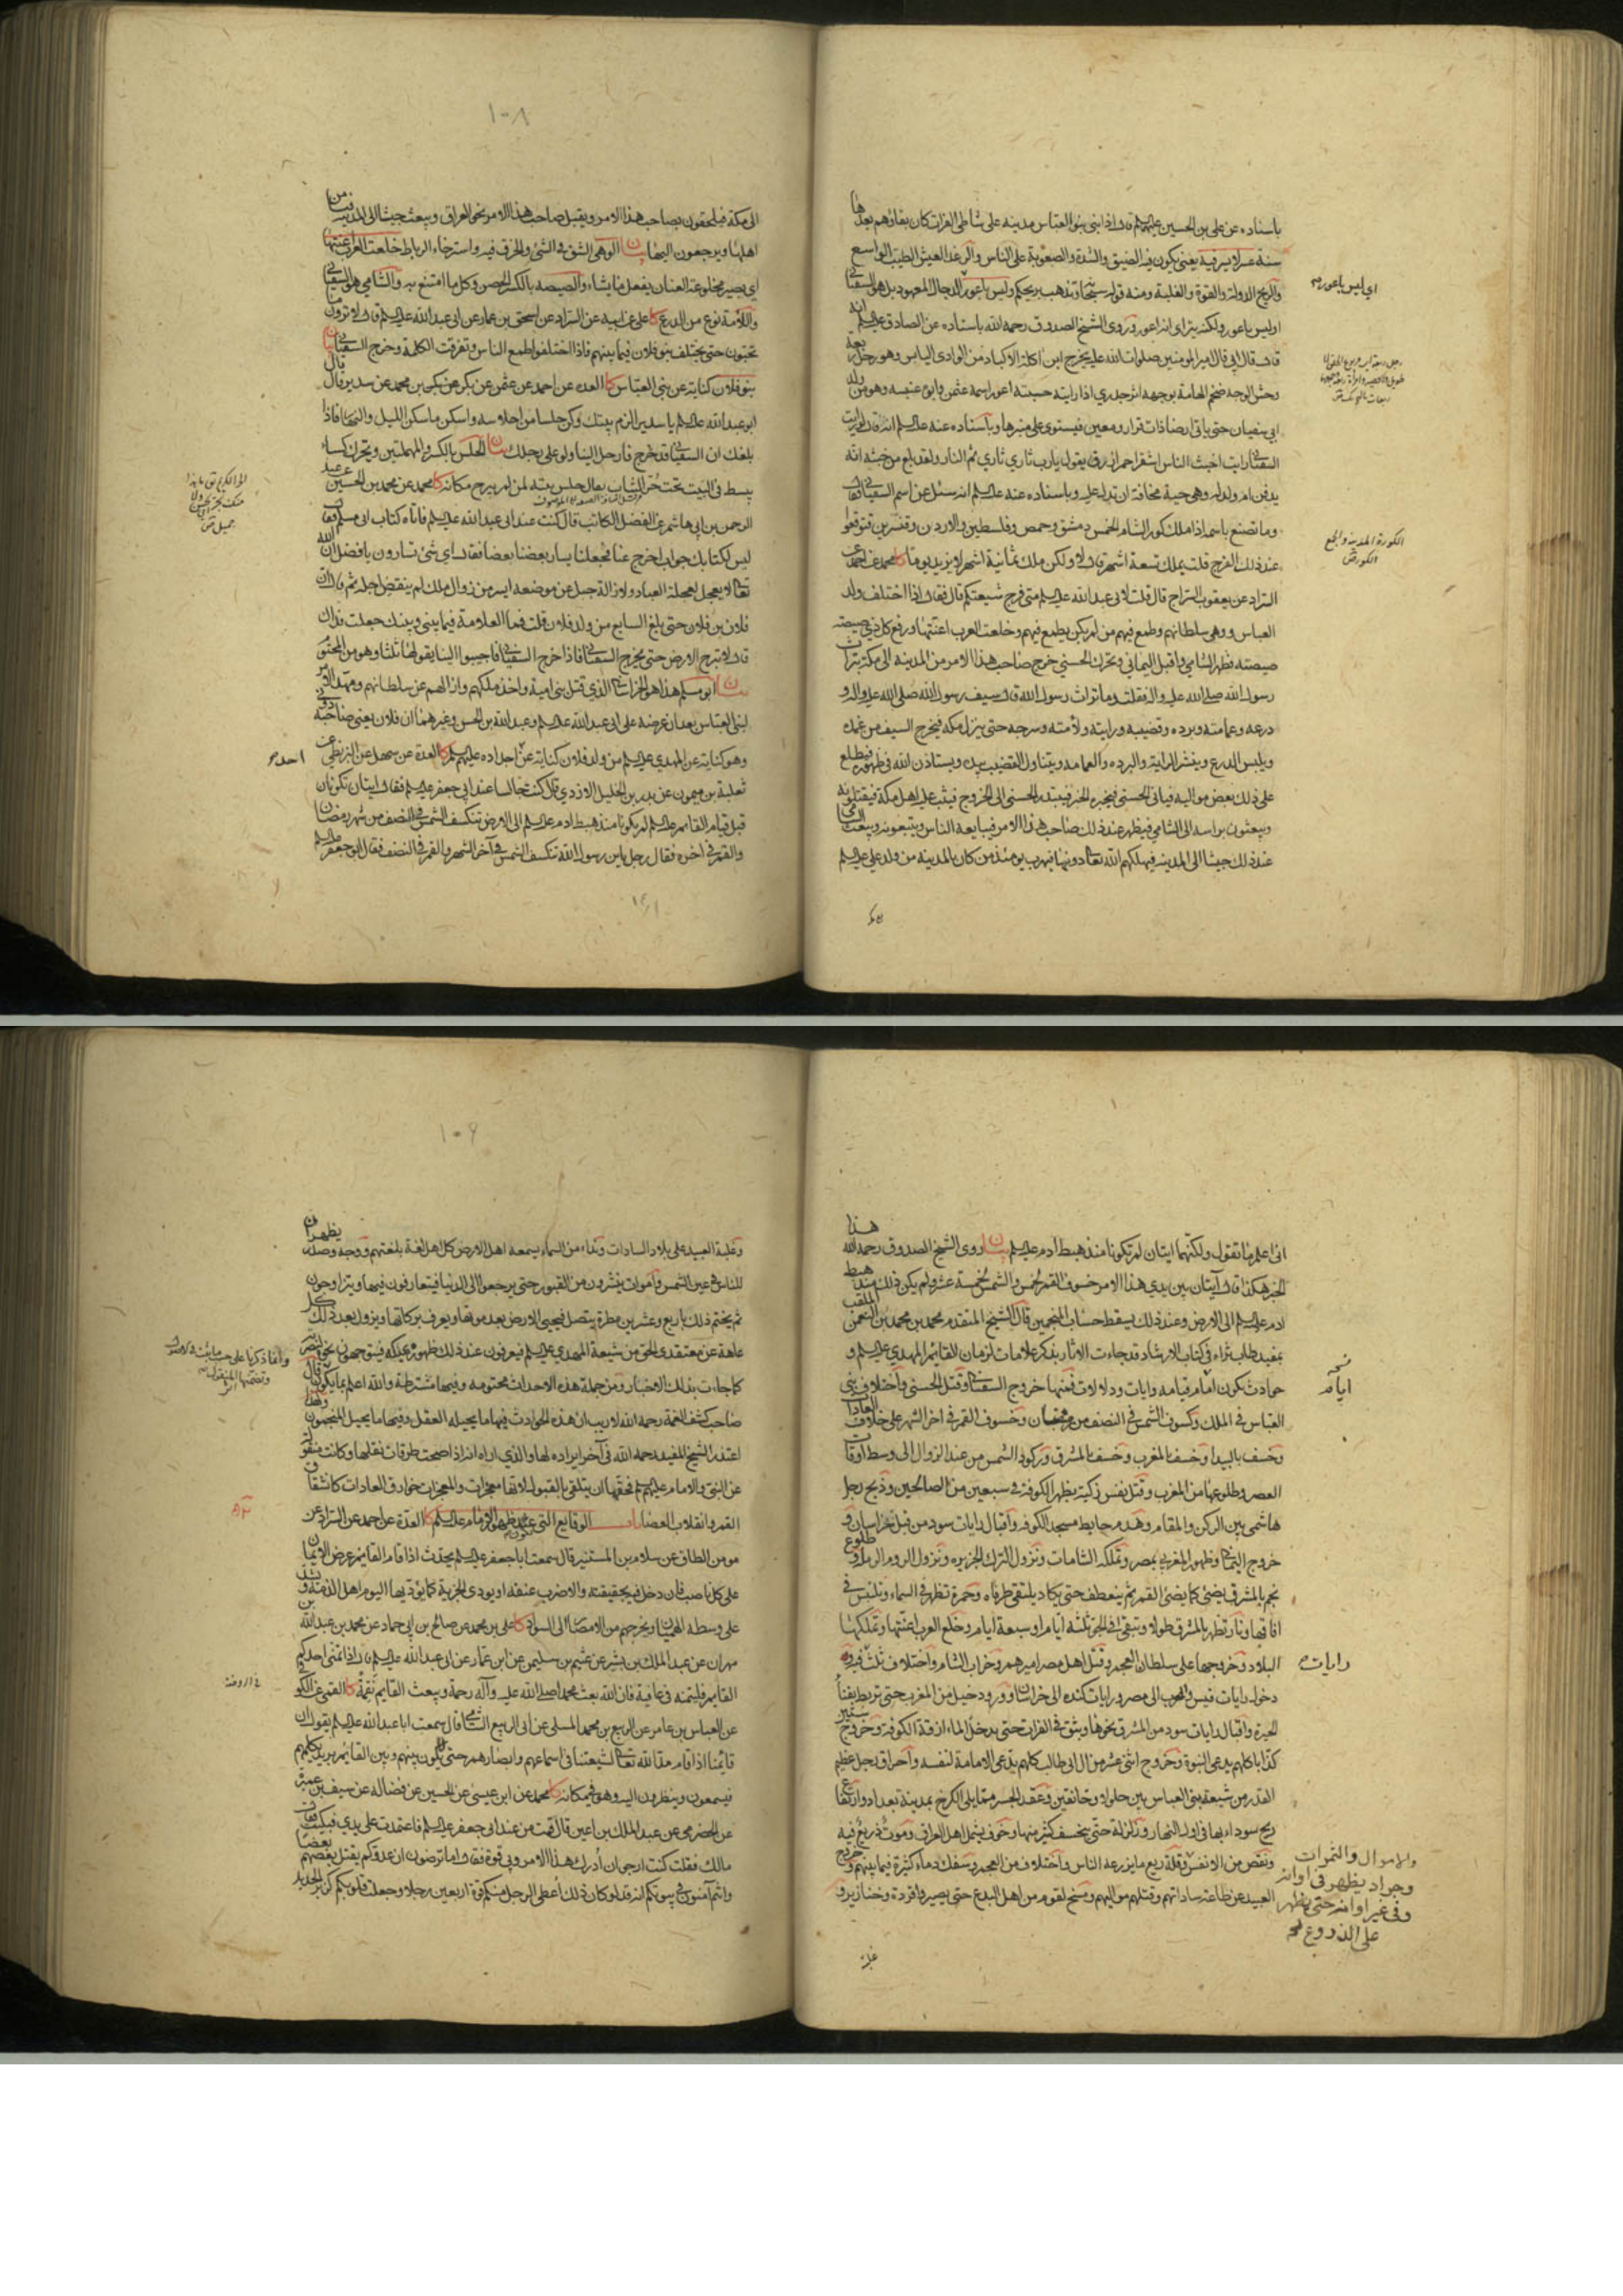 باسناده عن علی بن الحسین علیهما قال اذا بنی بنو العباس مدینه علی شاطئ الفرات کان بقاؤهم بعدها
سنة عسر لا یسر فیه یعنی یکون فیه الضیق والشدة والصعوبة علی الناس والرغد العیش الطیب الواسع
والریح الدولة والقوة والغلبة ومنه قوله سبحانه وتذهب ریحکم ولیس باعور الدجال المعهود بل هو السفیانی
اولیس باعور ولکنه یترای انه اعور وروی الشیخ الصدوق رحمه الله باسناده عن الصادق علیه السلم انه
قال قال ابی قال امیر المؤمنین صلوات الله علیه یخرج ابن اکلة الاکباد من الوادی الیابس وهو رجل ربعة
وحش الوجه ضخم الهامة بوجهه اثر جدری اذا رایته حسبته اعور اسمه عثمن وابوه عنبسه وهو من ولد
ابی سفیان حتی یاتی ارضا ذات قرار ومعین فیستوی علی منبرها وباسناده عنه علیه السلم انه قال لو رایت
السفیانی رایت اخبث الناس اشقر احمر ازرق یقول یا رب ثاری ثاری ثم النار ولقد بلغ من خبثه انه
یدفن ام ولد له وهی حیة مخافة ان تدل علیه وباسناده عنه علیه السلم انه سئل عن اسم السفیانی فقال
وما تصنع باسمه اذا ملک کور الشام الخمس دمشق وحمص وفلسطین والاردن وقنسرین فتوقعوا
عند ذلک الفرج قلت یملک تسعة اشهر قال لا ولکن ملک ثمانیة اشهر لا یزید یوما کا محمد عن احمد عن
السراد عن یعقوب السراج قال قلت لابی عبد الله علیه السلم متی فرج شیعتکم قال فقال اذا اختلف ولد
العباس ووهی سلطانهم وطمع فیهم من لم یکن یطمع فیهم وخلعت العرب اعنتها ورفع کل ذی صیصیة
صیصیته وظهر الشامی واقبل الیمانی وتحرک الحسنی خرج صاحب هذا الامر من المدینه الی مکة بتراث
رسول الله صلی الله علیه واله فقلت وما تراث رسول الله قال سیف رسول الله صلی الله علیه واله و
درعه وعمامته وبرده وقضیبه ورایته ولأمته وسرجه حتی ینزل مکه فیخرج السیف من غمده
ویلبس الدرع وینشر الرایة والبرده والعمامه ویتناول القضیب بیده ویستاذن الله فی ظهوره فیطلع
علی ذلک بعض موالیه فیاتی الحسنی فیخبره الخبر فیبتدر الحسنی الی الخروج فیثب علیه اهل مکة فیقتلونه
ویبعثون براسه الی الشامی فیظهر عند ذلک صاحب هذا الامر فیبایعه الناس ویتبعونه ویبعث الشامی
عند ذلک جیشا الی المدینه فیهلکهم الله تعالی دونها فیهرب یومئذ من کان بالمدینه من ولد علی علیه السلم
ای لیس باعور
الکورة المدینة والجمع
الکور ق
۱۰۸
الی مکة فیلحقون بصاحب هذا الامر ویقبل صاحب هذا الامر نحو العراق ویبعث جیشا الی المدینه فیامن
اهلها ویرجعون الیها بیان الوهی الشق فی الشئ والخرق فیه واسترخاء الرباط خلعت العرب اعنتها
ای یصیر مخلوعة العنان یفعل ما یشاء والصیصه بالکسر الحصن وکل ما امتنع به والشامی هو السفیانی
واللأمة نوع من الدرع کا علی عن ابیه عن السراد عن اسحق بن عمار عن ابی عبد الله علیه السلم قال لا ترون ما
تحبون حتی یختلف بنو فلان فیما بینهم فاذا اختلفوا طمع الناس وتفرقت الکلمة وخرج السفیانی بیان
بنو فلان کنایة عن بنی العباس کا العده عن احمد عن عثمن عن بکر عن بکر بن محمد عن سدیر قال قال
ابو عبد الله علیه السلم یا سدیر الزم بیتک وکن حلسا من احلاسه واسکن ما سکن اللیل والنهار فاذا
بلغک ان السفیانی قد خرج فارحل الینا ولو علی رجلک بیان الحلس بالکسر والمهملتین ویحرک کساء
یبسط فی البیت تحت حر الثیاب یقال حلس بیته لمن لم یبرح مکانه کا محمد عن محمد بن الحسین عن عبد
الرحمن بن ابی هاشم عن الفضل الکاتب قال کنت عند ابی عبد الله علیه السلم فاتاه کتاب ابی مسلم فقال
لیس لکتابک جواب اخرج عنا فجعلنا یسار بعضنا بعضا فقال ای شئ تسارون یا فضل ان الله
تعالی لا یعجل لعجلة العباد ولازالة جبل عن موضعه ایسر من زوال ملک لم ینقض اجله ثم قال ان
فلان بن فلان حتی بلغ السابع من ولد فلان قلت فما العلامة فیما بیننی وبینک جعلت فداک
قال لا تبرح الارض حتی یخرج السفیانی فاذا خرج السفیانی فاجیبوا الینا یقولها ثلثا وهو من المحتوم
بیان ابو مسلم هذا هو الخراسانی الذی قتل بنی امیة واخذ ملکهم وازالهم عن سلطانهم ومهد الامر
لبنی العباس بعد ان عرضه علی ابی عبد الله علیه السلم وعبد الله بن الحسن وغیرهما ان فلان یعنی صاحبه
وهو کنایة عن المهدی علیه السلم من ولد فلان کنایة عن اجداده علیهم السلم کا العدة عن سهل عن البزنطی عن
ثعلبة بن میمون عن بدر بن الخلیل الازدی قال کنت جالسا عند ابی جعفر علیه السلم فقال ایتان تکونان
قبل قیام القایم علیه السلم لم یکونا منذ هبط ادم علیه السلم الی الارض تنکسف الشمس فی النصف من شهر رمضان
والقمر فی اخره فقال رجل یا بن رسول الله تنکسف الشمس فی آخر الشهر والقمر فی النصف فقال ابو جعفر علیه السلم
انی اعلم ما تقول ولکنهما ایتان لم تکونا منذ هبط ادم علیه السلم بیان روی الشیخ الصدوق رحمه الله هذا
الخبر هکذا قال آیتان بین یدی هذا الامر خسوف القمر لخمس والشمس لخمسة عشر ولم یکن ذلک منذ هبط
ادم علیه السلم الی الارض وعند ذلک یسقط حساب المنجمین قال الشیخ المتقدم محمد بن محمد بن النعمن الملقب
بمفید طاب ثراه فی کتاب الارشاد قد جاءت الاثار بذکر علامات لزمان القائم المهدی علیه السلم و
حوادث تکون امام قیامه وایات ودلالات فمنها خروج السفیانی وقتل الحسنی واختلاف بنی
العباس فی الملک وکسوف الشمس فی النصف من رمضان وخسوف القمر فی اخر الشهر علی خلاف العادات
وخسف بالبیدا وخسف بالمغرب وخسف بالمشرق ورکود الشمس من عند الزوال الی وسط اوقات
العصر وطلوعها من المغرب وقتل نفس زکیة بظهر الکوفه فی سبعین من الصالحین وذبح رجل
هاشمی بین الرکن والمقام وهدم حایط مسجد الکوفه واقبال رایات سود من قبل خراسان و
خروج الیمانی وظهور المغربی بمصر وتملکه الشامات ونزول الترک الجزیره ونزول الروم الرملة وطلوع
نجم بالمشرق یضئ کما یضئ القمر ثم ینعطف حتی یکاد یلتقی طرفاه وحمرة تظهر فی السماء وتلبس فی
افاقها ونار تظهر بالمشرق طولا وتبقی فی الجو ثلثة ایام او سبعة ایام وخلع العرب اعنتها وتملکها
البلاد وخروجها علی سلطان العجم وقتل اهل مصر امیرهم وخراب الشام واختلاف ثلث فیه و
دخول رایات قیس والعرب الی مصر ورایات کنده الی خراسان وورود خیل من المغرب حتی تربط بفناء
الحیرة واقبال رایات سود من المشرق نحوها وبثق فی الفرات حتی یدخل الماء ازقة الکوفه وخروج ستین
کذابا کلهم یدعی النبوة وخروج اثنی عشر من ال ابی طالب کلهم یدعی الامامة لنفسه واحراق رجل عظیم
القدر من شیعة بنی العباس بین جلولاء وخانقین وعقد الجسر مما یلی الکرخ بمدینة بغداد وارتفاع
ریح سوداء بها فی اول النهار وزلزلة حتی ینخسف کثیر منها وخوف یشمل اهل العراق وموت ذریع فیه
ونقص من الانفس وقلة ریع ما یزرعه الناس واختلاف من العجم وسفک دماء کثیرة فیما بینهم وخروج
العبید عن طاعة ساداتهم وقتلهم موالیهم ومسخ لقوم من اهل البدع حتی یصیروا قردة وخنازیر و
رایات
والاموال والثمرات
وجراد یظهر فی اوانه
وفی غیر اوانه حتی یظهر
علی الزروع
غلبة
۱۰۹
وغلبة العبید علی بلاد السادات ونداء من السماء یسمعه اهل الارض کل اهل لغة بلغتهم ووجه وصدر یظهران
للناس فی عین الشمس واموات ینشرون من القبور حتی یرجعوا الی الدنیا فیتعارفون فیها ویتزاوجون
ثم یختم ذلک باربع وعشرین مطرة یتصل فیحیی الارض بعد موتها ویعرف برکاتها ویزول بعد ذلک کل
عاهة عن معتقدی الحق من شیعة المهدی علیه السلم فیعرفون عند ذلک ظهوره بمکه فیتوجهون نحوه لنصرته
کما جاءت بذلک الاخبار ومن جملة هذه الاحداث محتومه وفیها مشترطة والله اعلم بما یکون قال
صاحب کشف الغمة رحمه الله لا ریب ان هذه الحوادث فیها ما یحیله العقل وفیها ما یحیل المنجمون ولهذا
اعتذر الشیخ المفید رحمه الله فی آخر ایراده لها والذی اراه انه اذا صحت طرقات نقلها وکانت منقولة
عن النبی والامام علیهم السلم فحقها ان یتلقی بالقبول لانها معجزات والمعجزات خوارق العادات کانشقاق
القمر وانقلاب العصا باب الوقایع التی تکون عند ظهور الامام علیه السلم کا العدة عن احمد عن السراد عن
مومن الطاق عن سلام بن المستنیر قال سمعت ابا جعفر علیه السلم یحدث اذا قام القایم عرض الایمان
علی کل ناصب فان دخل فیه بحقیقته والا ضرب عنقه او یودی الجزیة کما یؤدیها الیوم اهل الذمة ویشد
علی وسطه الهمیان ویخرجهم من الامصار الی السواد کا علی بن محمد عن صالح بن ابی حماد عن محمد بن عبد الله بن
مهران عن عبد الملک بن بشیر عن عثیم بن سلیمن عن ابن عمار عن ابی عبد الله علیه السلم قال اذا تمنی احدکم
القایم فلیتمنه فی عافیة فان الله بعث محمدا صلی الله علیه وآله رحمة ویبعث القایم نقمة کا القمی عن الکوفی
عن العباس بن عامر عن الربیع بن محمد المسلی عن ابی الربیع الشامی قال سمعت ابا عبد الله علیه السلم یقول ان
قائمنا اذا قام مد الله تعالی لشیعتنا فی اسماعهم وابصارهم حتی لا یکون بینهم وبین القائم برید یکلمهم
فیسمعون وینظرون الیه وهو فی مکانه کا محمد عن ابن عیسی عن الحسین عن فضاله عن سیف بن عمیرة
عن الحضرمی عن عبد الملک بن اعین قال قمت من عند ابی جعفر علیه السلم فاعتمدت علی یدی فبکیت فقال
مالک فقلت کنت ارجو ان أدرک هذا الامر وبی قوة فقال اما ترضون ان عدوکم یقتل بعضهم بعضا
وانتم آمنون فی بیوتکم انه قد لو کان ذلک أعطی الرجل منکم قوة اربعین رجلا وجعلت قلوبکم کزبر الحدید